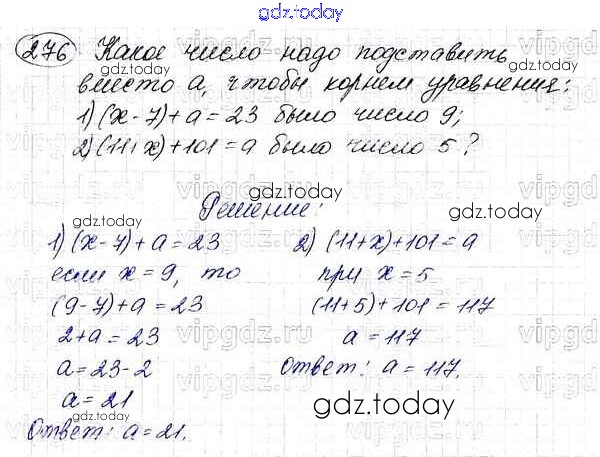 gdz.today
276 Какое число надо подставить
gdz.today
вместо а, чтобы корнем уравнения:
1) (x-7)+a=23 было число 9;
2) (11+x)+101=a было число 5?
gdz.today
gdz.today
gdz.today
Решение:
1) (x-7)+a=23
если x=9, то
(9-7)+a=23
2+a=23
a=23-2
a=21
Ответ: a=21.
2) (11+x)+101=a
при x=5
(11+5)+101=117
a=117
Ответ: a=117.
gdz.today
vipgdz.ru